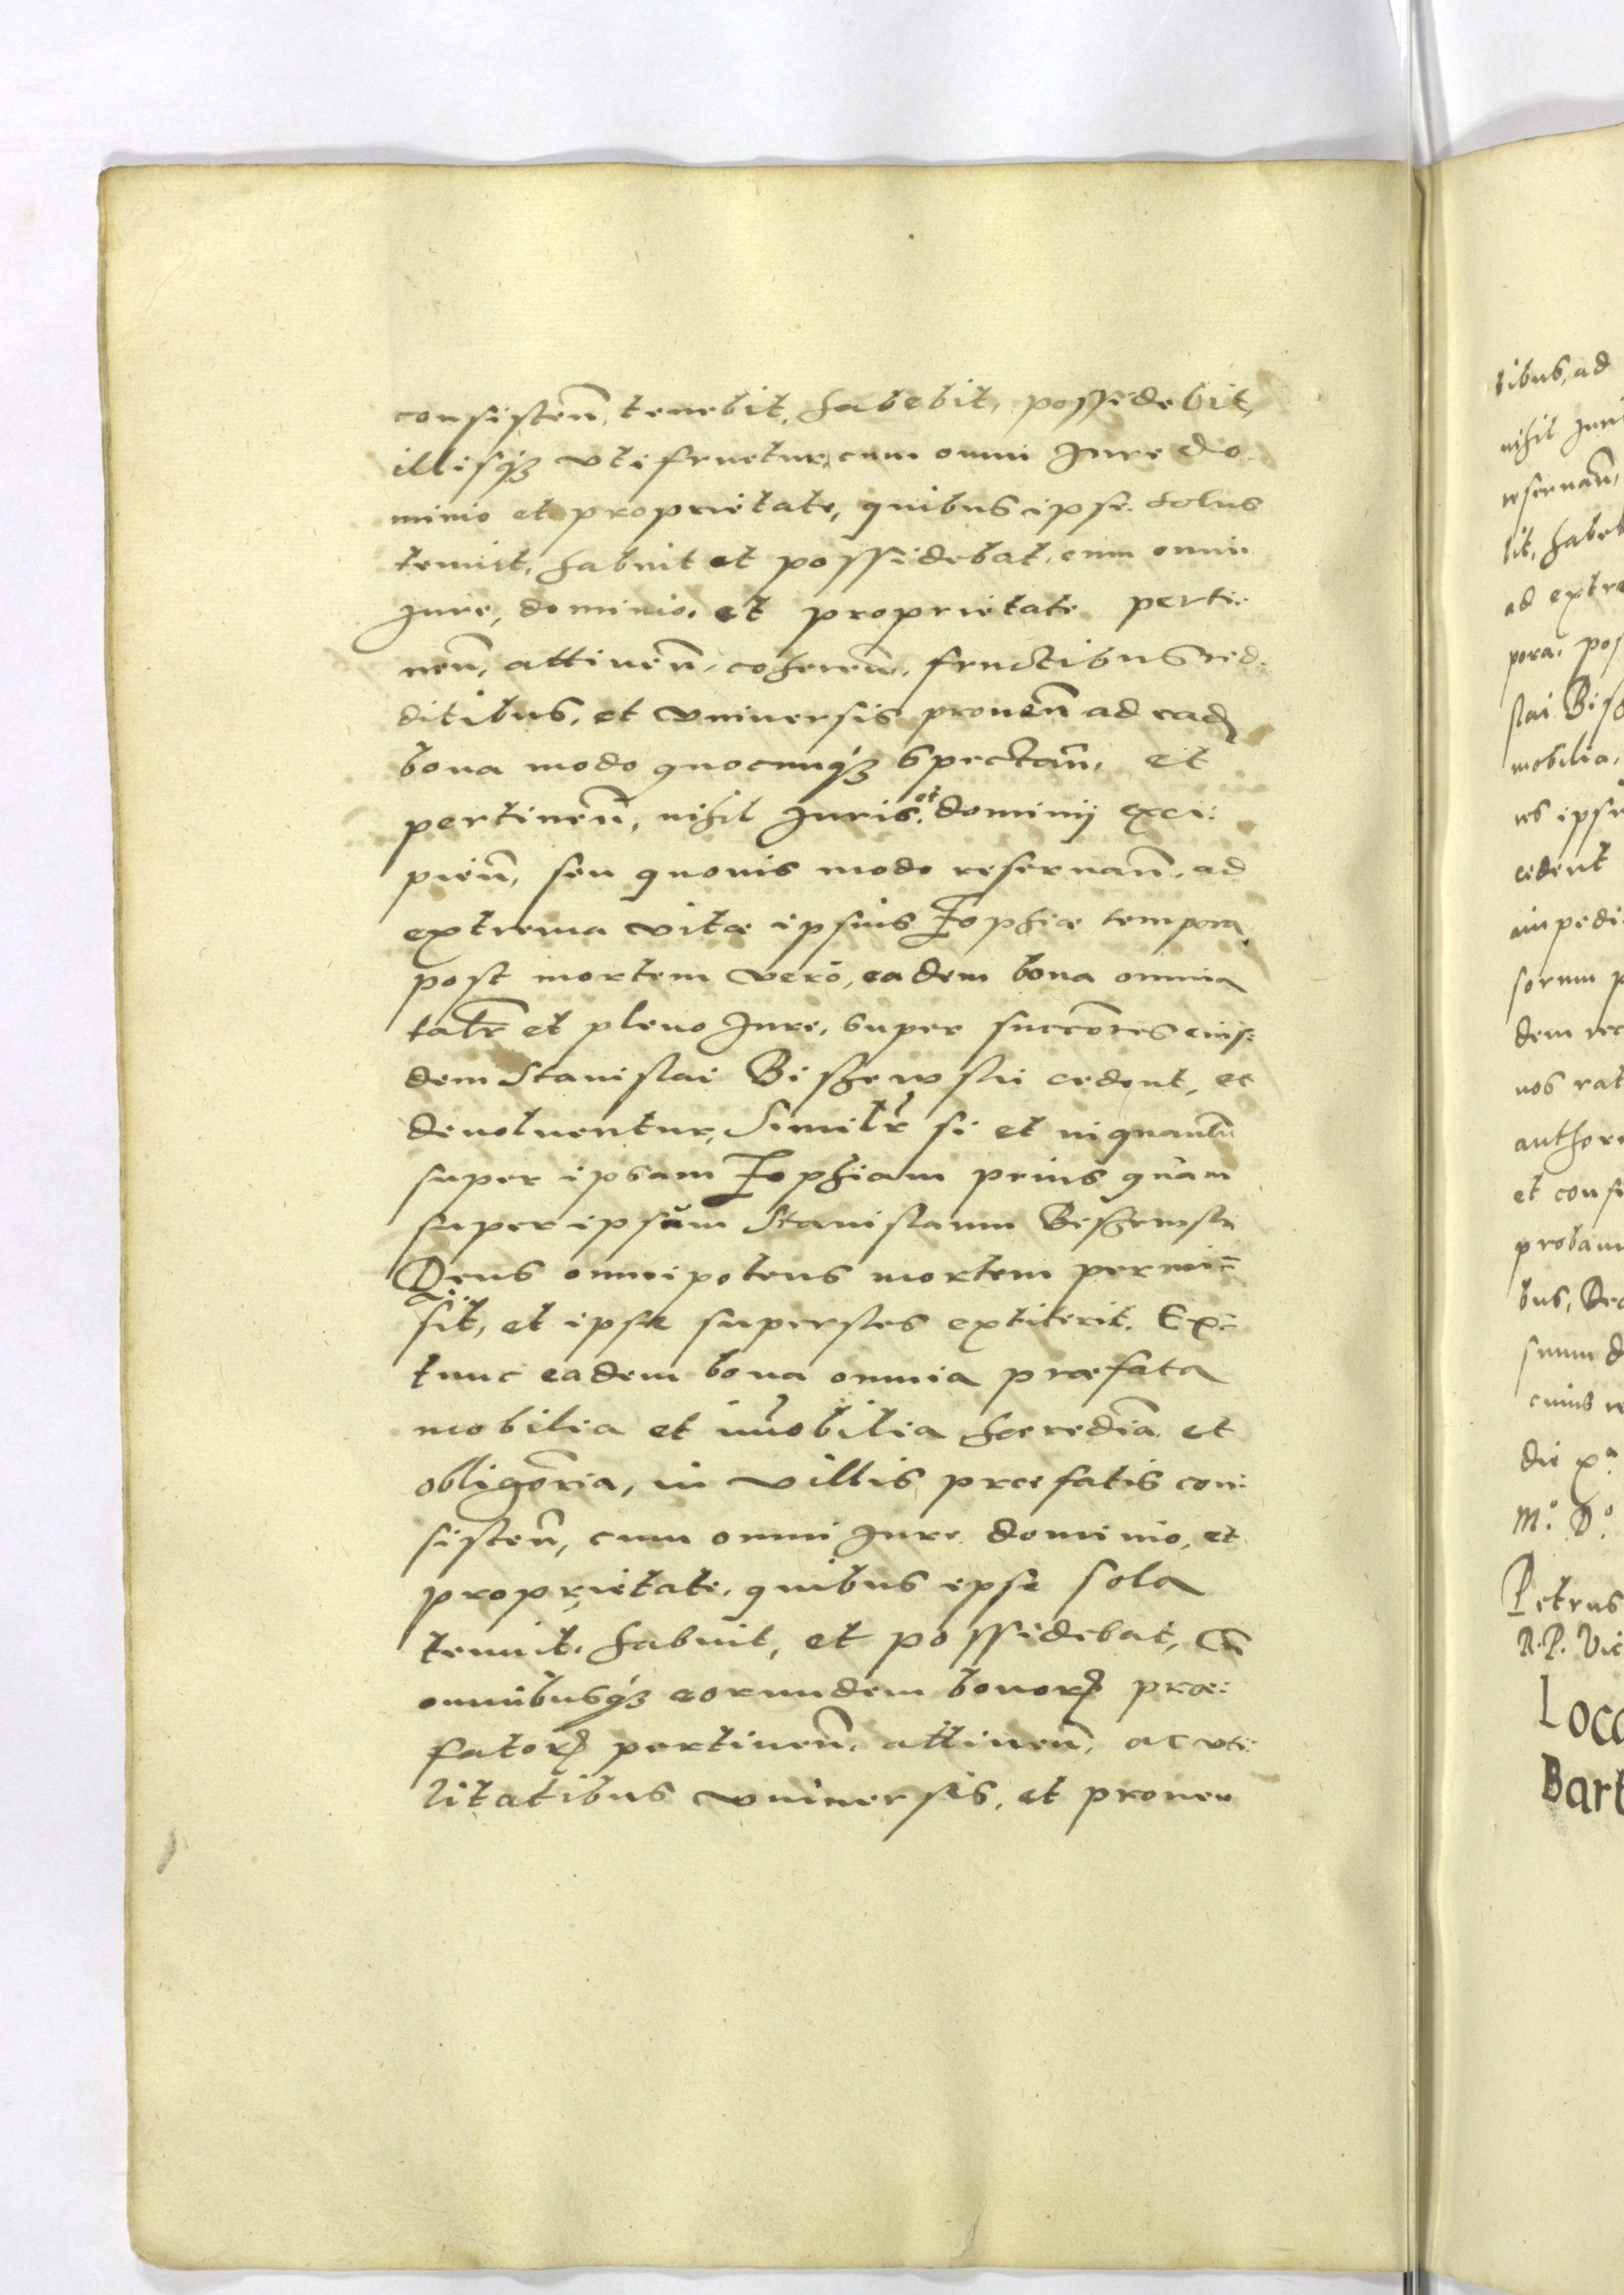 consisteñ, tenebit, habebit, possidebit,
illisq́ꝫ vtifruetur, cum omni Jure do
minio et proprietate, quibus ipse solus
tenuit, habuit et possidebat, cum omni
Jure, dominio, et proprietate perti:
neñ, attineñ, cohereñ, fructibus red:
ditibus, et vniuersis proueñ ad eadẽ
bona modo quocunq́ꝫ spectañ, et
pertineñ, nihil Juris et dominij exci:
pieñ, seu quouis modo reseruañ, ad
extrema vitæ ipsius Zophiæ tempora,
post mortem verò, eadem bona omnia
talr̃ et pleno Jure, super succõres eius:
dem Stanislai Bisʒewski cedent, et
deuoluentur, Similr̃ si et inquantũ
super ipsam Zophiam prius quàm
super ipsum Stanislaum Bisʒewski
Deus omnipotens mortem permi=
sit, et ipse superstes extiterit. Ex:
tunc eadem bona omnia præfata
mobilia et im̃obilia hærediã et
obligõria, in villis præfatis con:
sisteñ, cum omni Jure dominio, et
proprietate, quibus ipsa sola
tenuit, habuit, et possidebat, Cũ
omnibusq́ꝫ eorundem bonorꝝ præ:
fatorꝝ pertineñ, attineñ, ac vti:
litatibus vniuersis, et prouen
tibus, ad
nihil Juri
reseruañ,
bit, habeb
ad extre
pora, pos
slai Bisʒ
mobilia,
res ipsi
cedent
impedi
sorum p
dem rec
nos rat
author
et consi
probam
bus, Dec
suum d
cuius re
die xª
M.º D.º
Petrus
R. P. Vic
Loco
Bart